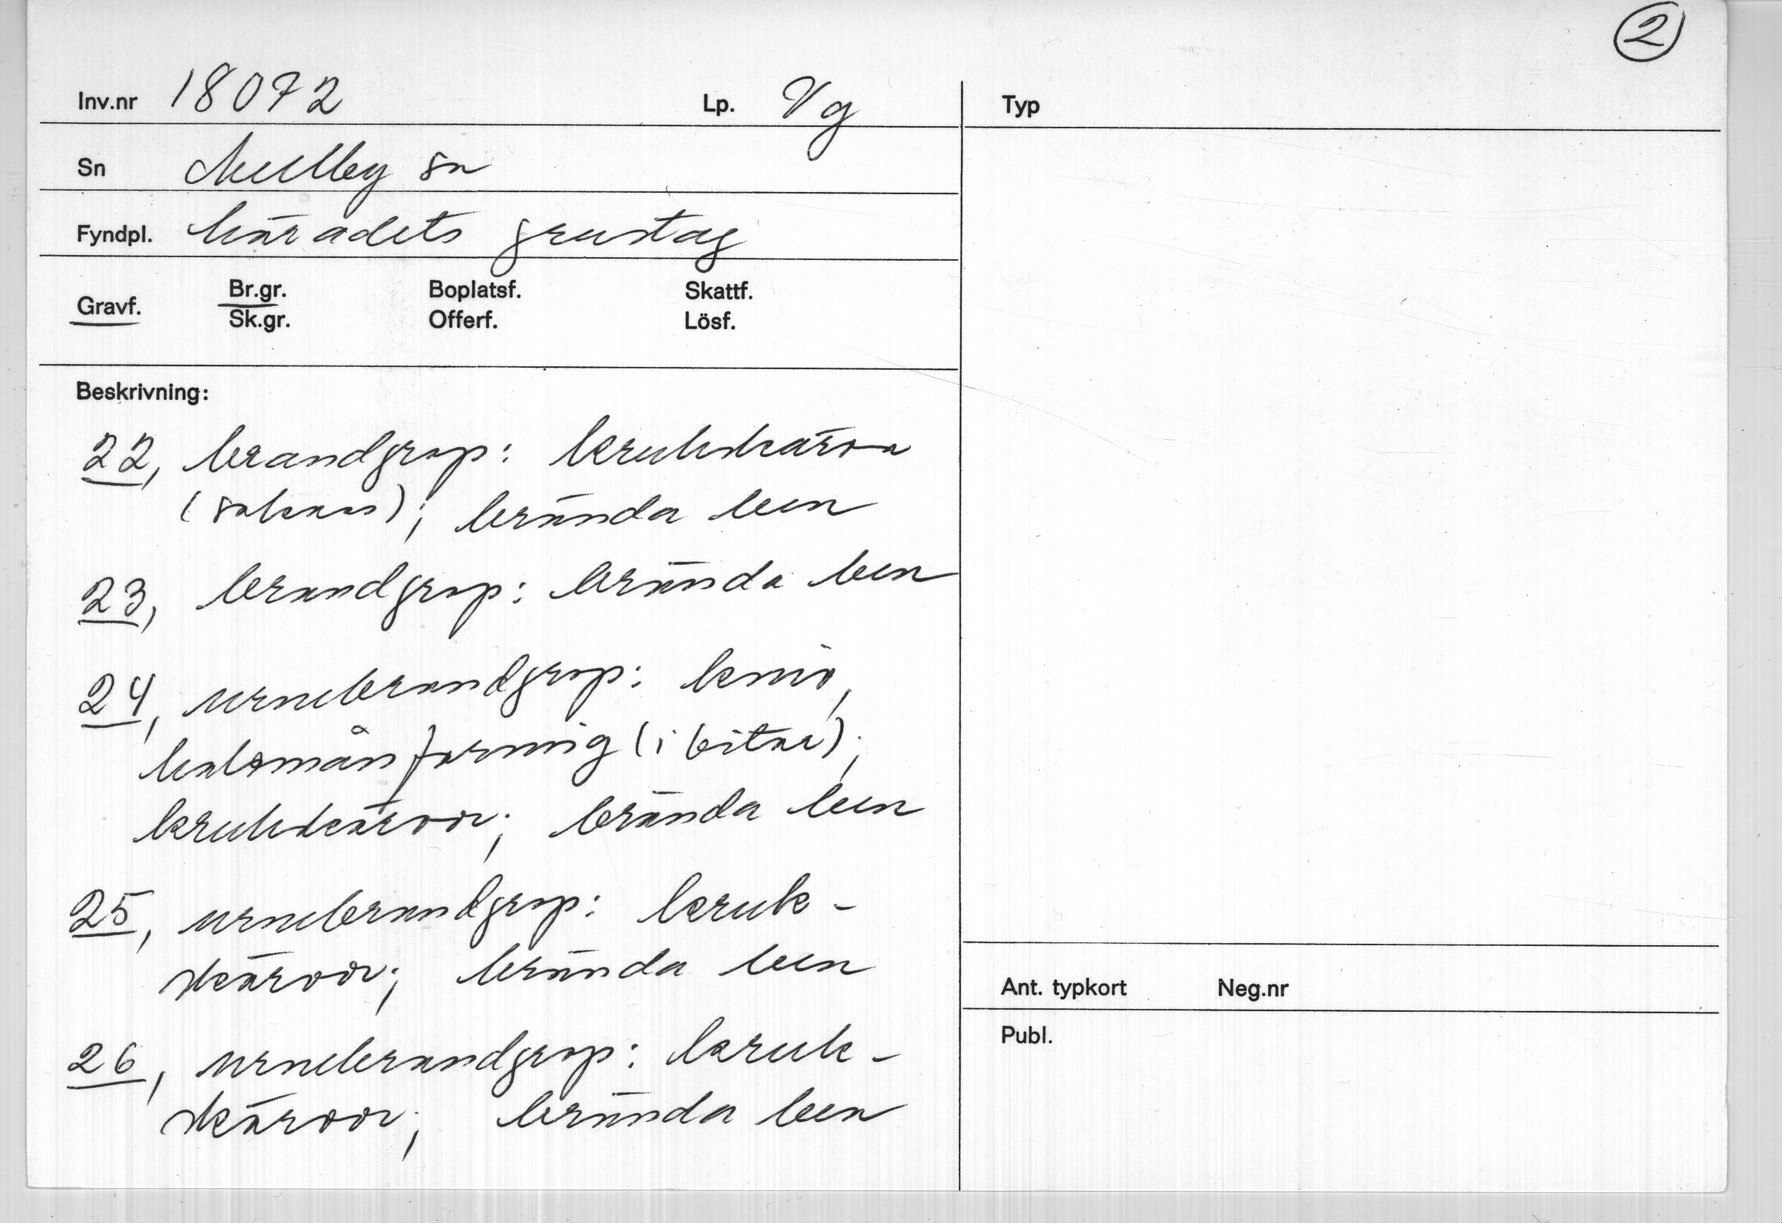 2
Inv.nr 18072 Lp. Vg Typ
Sn Mellby sn
Fyndpl. häradets grustag
Gravf. Br.gr. Boplatsf. Skattf.
Sk.gr. Offerf. Lösf.
Beskrivning:
22, brandgrop: krukskärva
(saknas); brända ben
23, brandgrop: brända ben
24, urnebrandgrop: kniv,
halvmånformig (i bitar);
krukskärvor; brända ben
25, urnebrandgrop: kruk-
skärvor; brända ben
26, urnebrandgrop: kruk-
skärvor; brända ben
Ant. typkort Neg.nr
Publ.